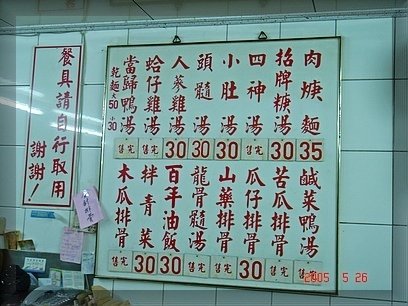 餐具請自行取用
謝謝！
肉焿麵 35
招牌焿湯 30
四神湯 售完
小肚湯 30
頭髓湯 30
人蔘雞湯 30
蛤仔雞湯 售完
當歸鴨湯 售完
乾麵 大50 小30
鹹菜鴨湯 售完
苦瓜排骨 售完
瓜仔排骨 30
山藥排骨 售完
龍骨髓湯 售完
百年油飯 30
拌青菜 30
木瓜排骨 售完
2005 5 26